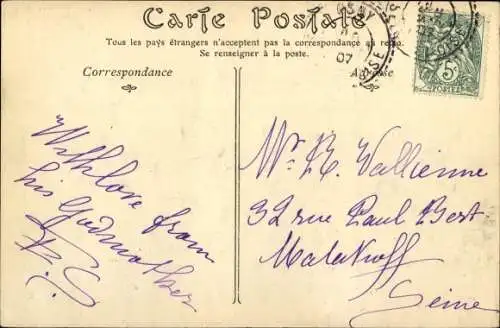 Carte Postale
Tous les pays étrangers n'acceptent pas la correspondance au recto.
Se renseigner à la poste.
Correspondance
Adresse
OSNY
07
OISE
5c
POSTES
With love from
his Godmother
Mr R. Vallienne
32 rue Paul Bert
Malakoff
Seine